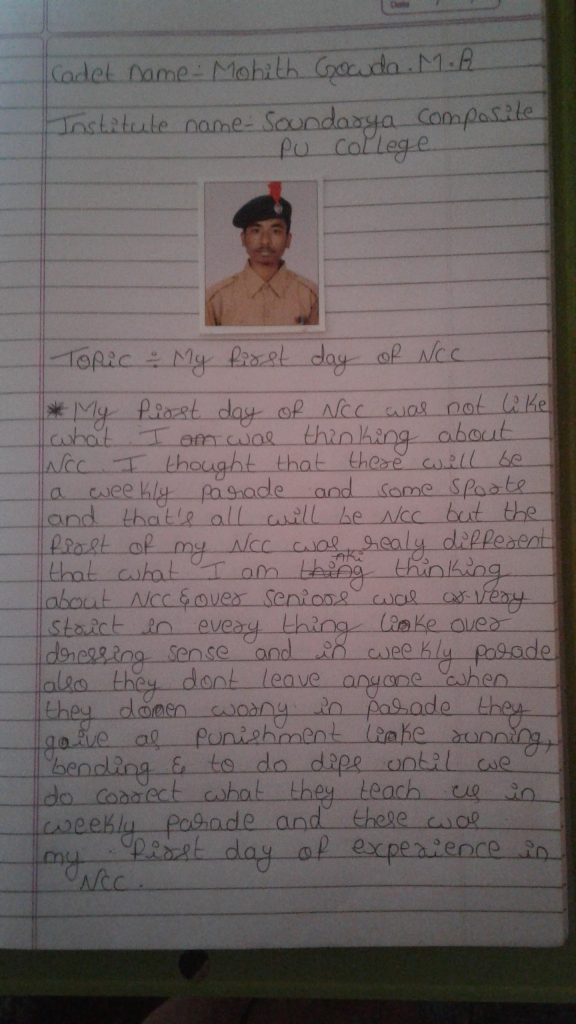 Date
Cadet name:- Mohith Gowda.M.R
Institute name:- Soundarya composite
PU College
Topic :- My first day of NCC
* My first day of NCC was not like
what I am was thinking about
NCC. I thought that there will be
a weekly parade and some sports
and that's all will be NCC but the
first of my NCC was realy different
that what I am thing thinking
about NCC & over seniors was very
strict in every thing like over
dressing sense and in weekly parade
also they dont leave anyone when
they doen worng in parade they
gaive as punishment like running,
bending & to do dips until we
do correct what they teach us in
weekly parade and these was
my first day of experience in
NCC.